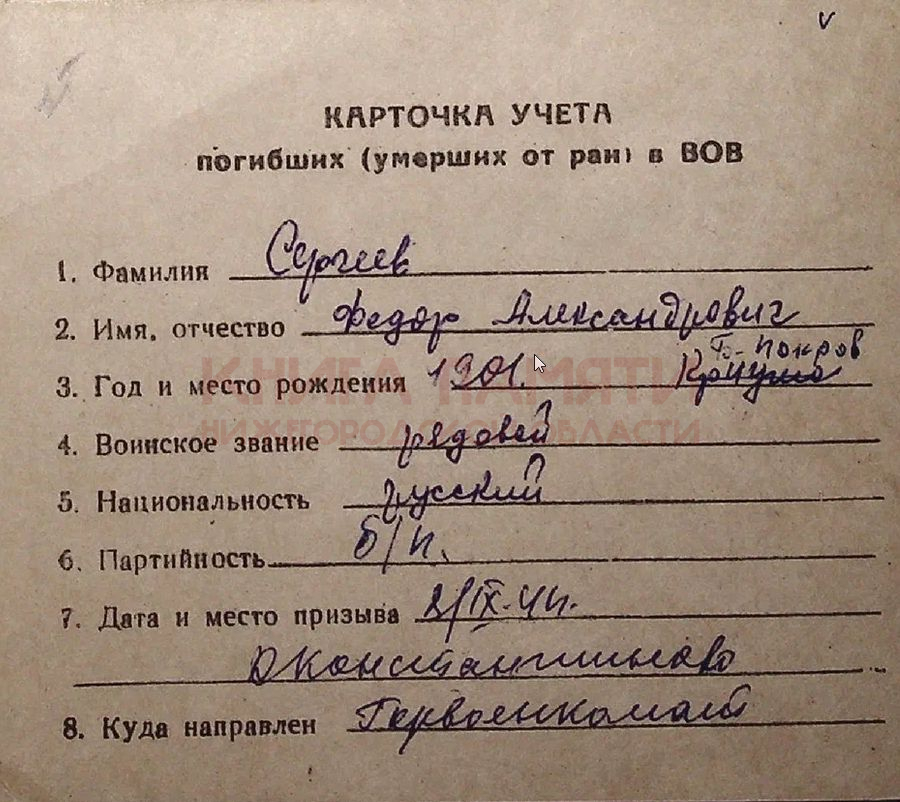 КАРТОЧКА УЧЕТА
погибших (умерших от ран) в ВОВ
1. Фамилия Сергеев
2. Имя, отчество Федор Александрович
Б-Покров
3. Год и место рождения 1901.
КНИГА ПАМЯТИ
НИЖЕГОРОДСКОЙ ОБЛАСТИ
4. Воинское звание рядовой
5. Национальность русский
6. Партийность б/п.
7. Дата и место призыва 8/IX-41г.
Д Константиново
8. Куда направлен Горвоенкомат